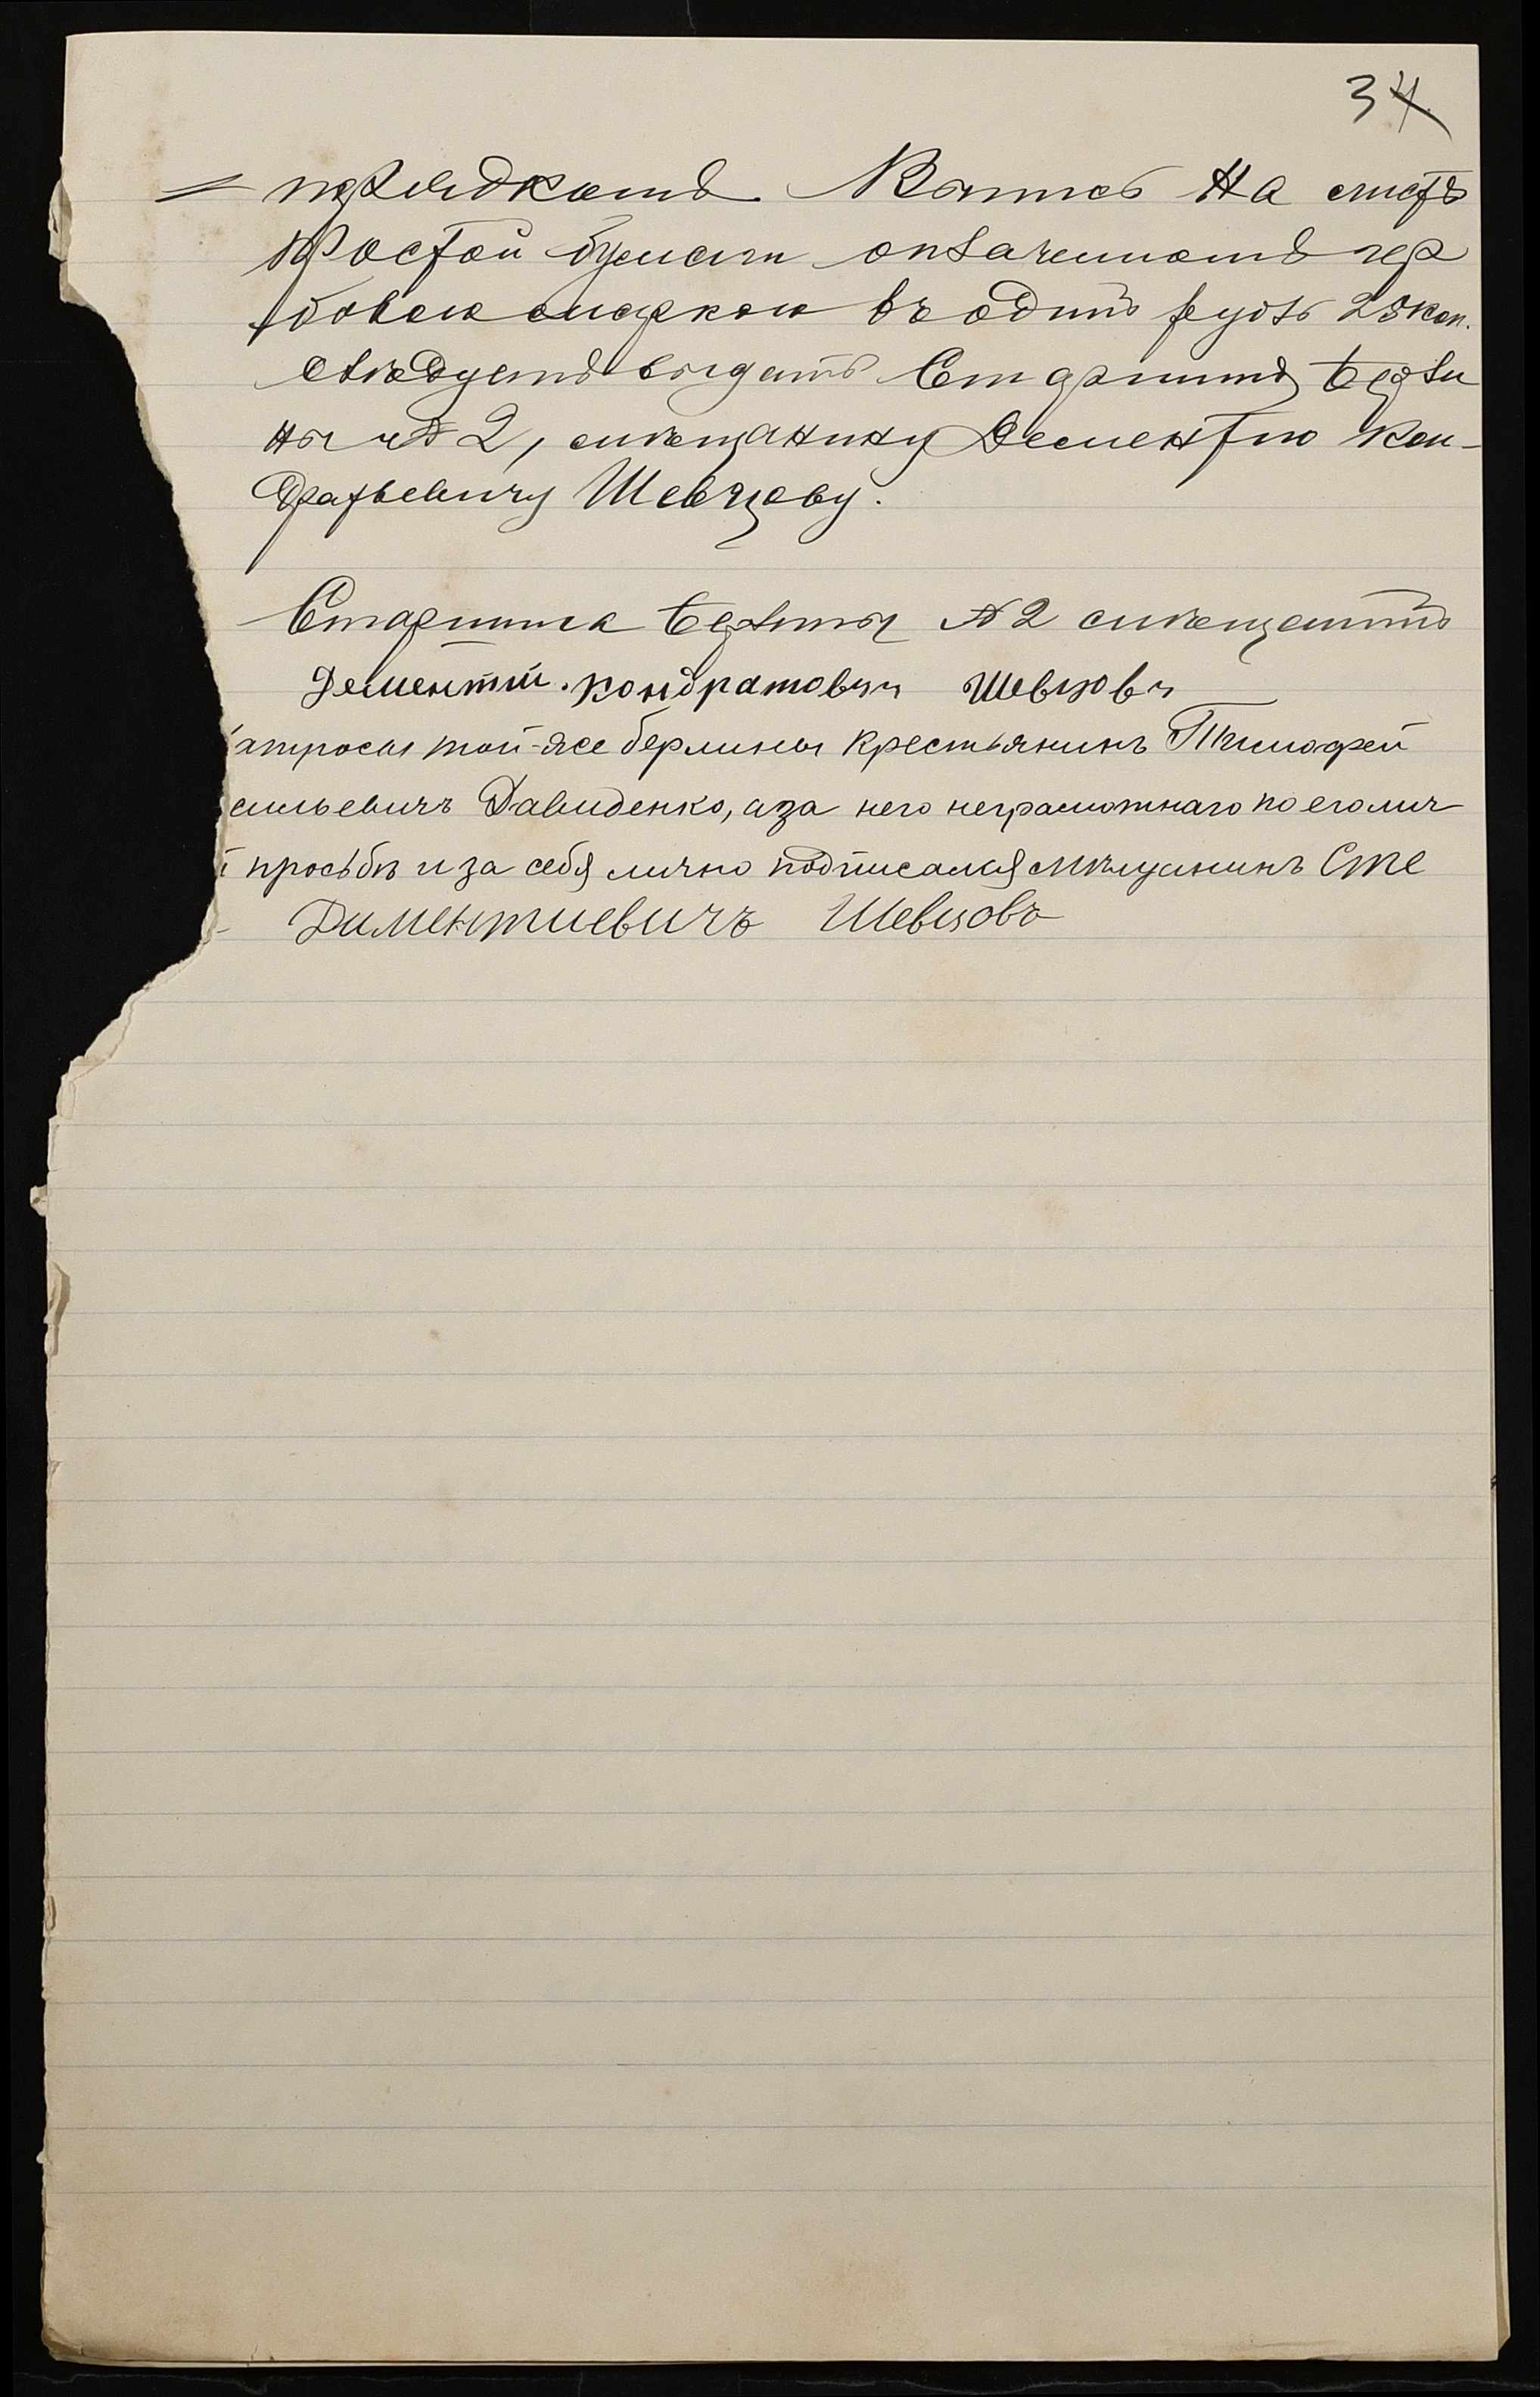 34
= порядкомъ. Выпись на листѣ
простой бумаги оплаченномъ гер
бовою маркою въ одинъ рубль 25 коп.
слѣдуетъ выдать Старшинѣ Берли
ны № 2, мѣщанину Дементію Кон-
дратьевичу Шевцову.
Старшина Берлины № 2 мѣщанинъ
Дементий Кондратовичъ Шевцовъ
атросы той-же берлины крестьянинъ Тимофей
сильевичъ Давиденко, а за него неграмотнаго по его лич
й просьбѣ и за себя лично подписался мѣщанинъ Сте
Диментиевичъ Шевцовъ